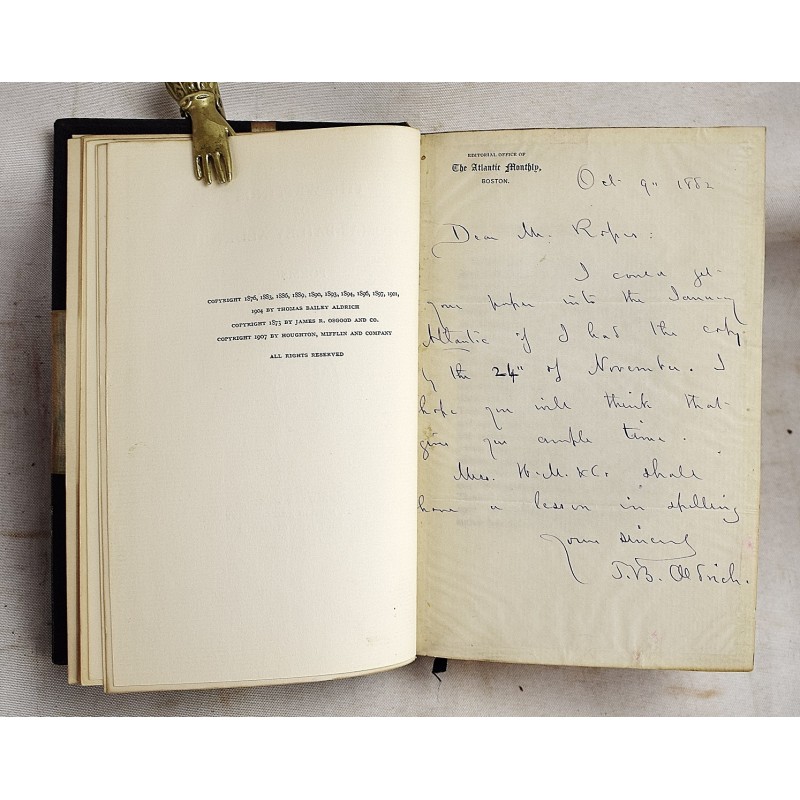 COPYRIGHT 1876, 1883, 1886, 1889, 1890, 1893, 1894, 1896, 1897, 1901,
1904 BY THOMAS BAILEY ALDRICH
COPYRIGHT 1873 BY JAMES R. OSGOOD AND CO.
COPYRIGHT 1907 BY HOUGHTON, MIFFLIN AND COMPANY
ALL RIGHTS RESERVED
EDITORIAL OFFICE OF
The Atlantic Monthly,
BOSTON.
Oct 9" 1882
Dear Mr. Ropes:
I could get
your paper into the January
Atlantic if I had the copy
by the 24" of November. I
hope you will think that
give you ample time.
Mess. H. M. &C. shall
have a lesson in spelling
Yours sincerely
T. B. Aldrich.